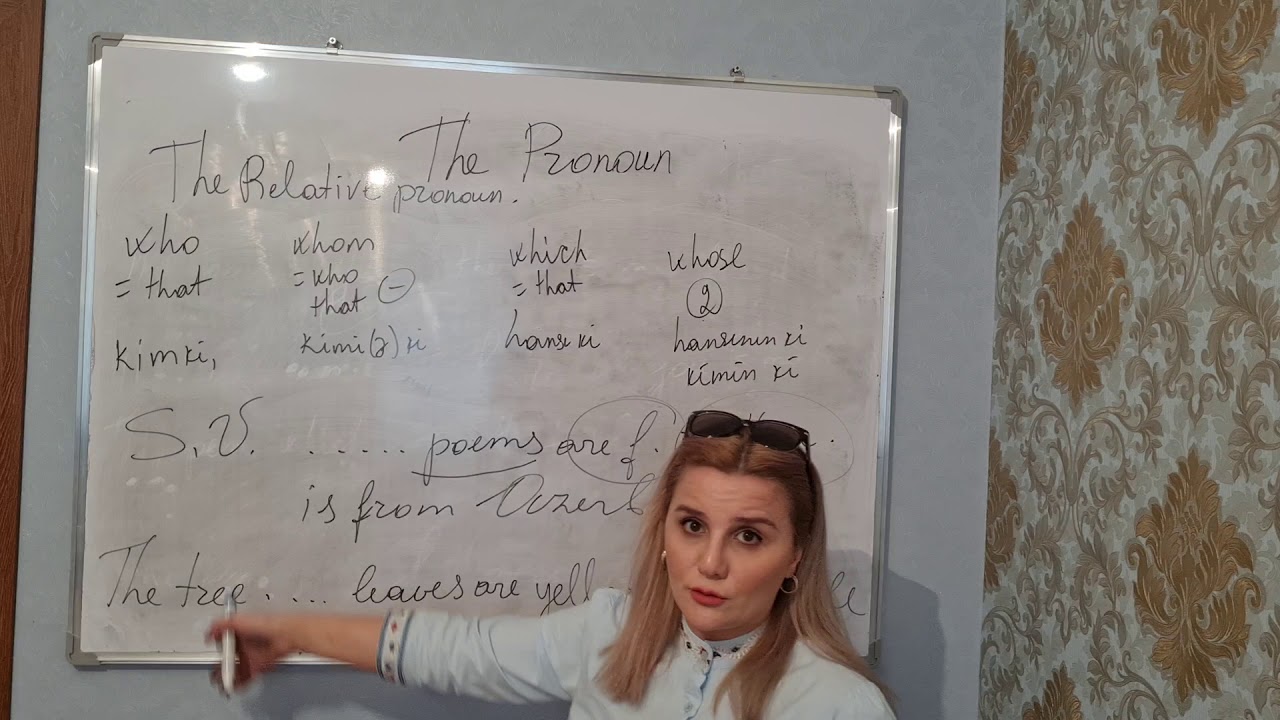 The Pronoun
The Relative pronoun.
who whom which whose
= that = who = that 2
that -
kimki, kimi(ə) ki hansı ki hansının ki
kimin ki
S.V. ...... poems are f.
is from Azerb
The tree .... leaves are yell le